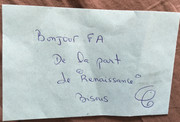 Bonjour FA
De La part
de "Renaissance"
Bisous